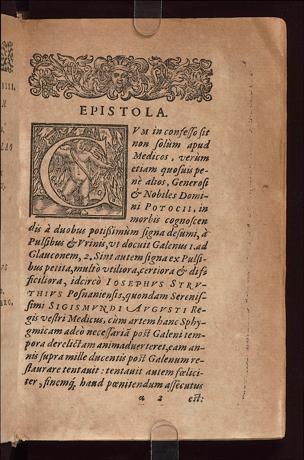 EPISTOLA.
CVM in confesso sit
non solùm apud
Medicos, verùm
etiam quosuis pe-
nè alios, Generosi
& Nobiles Domi-
ni POTOCII, in
morbis cognoscen
dis à duobus potißimùm signa desumi, à
Pulsibus & Vrinis, vt docuit Galenus 1. ad
Glauconem, 2. Sint autem signa ex Pulsi-
bus petita, multò veriora, certiora & dif
ficiliora, idcircò IOSEPHVS STRV-
THIVS Posnaniensis, quondam Serenis-
simi SIGISMVNDI AVGVSTI Re
gis vestri Medicus, cùm artem hanc Sphy
gmicam adeò necessariã post Galeni tem
pora derelictam animaduerteret, eam an-
nis supra mille ducentis post Galenum re-
staurare tentauit: tentauit autem fœlici-
ter, finemq́; haud pœnitendum assecutus
a 2
est: